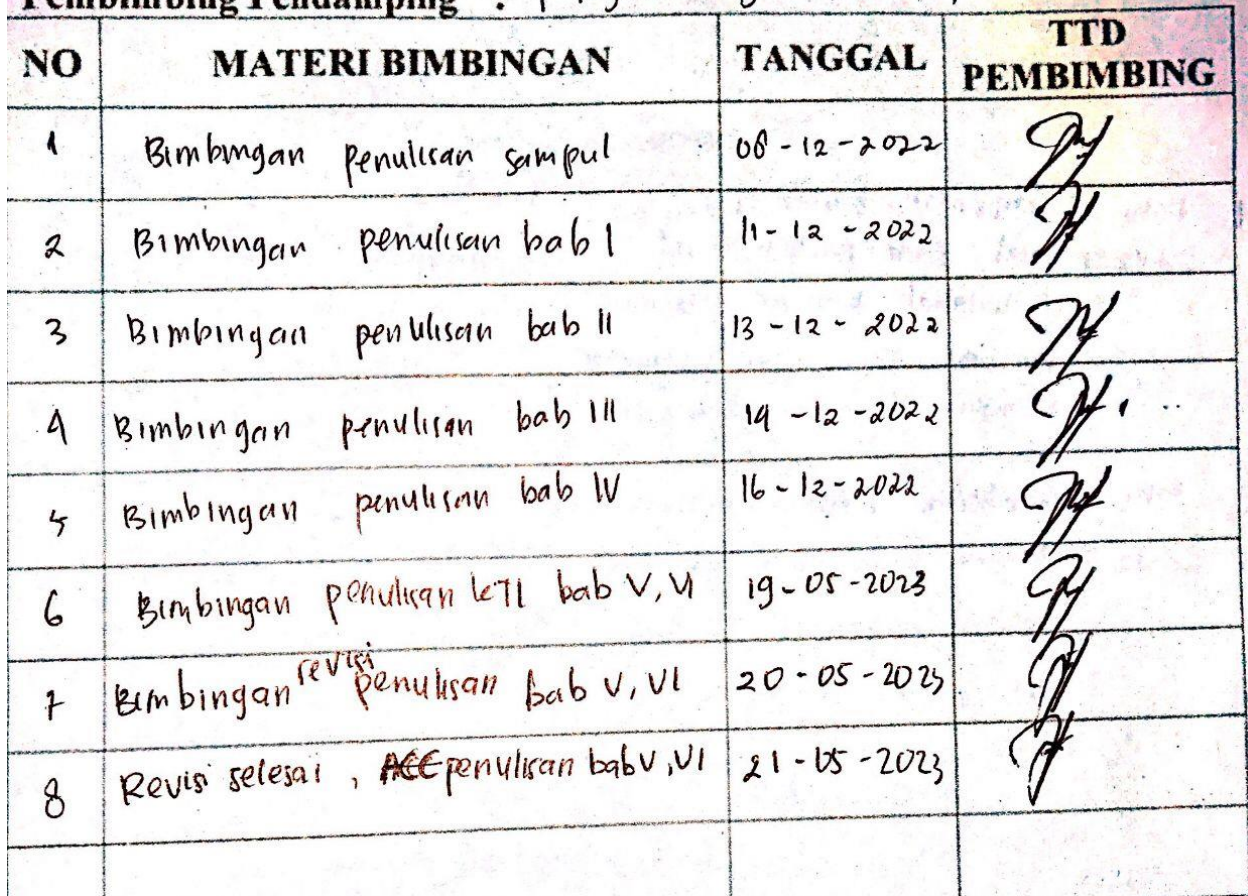 Pembimbing Pendamping :
NO MATERI BIMBINGAN TANGGAL TTD PEMBIMBING
1 Bimbingan penulisan sampul 08-12-2022
2 Bimbingan penulisan bab I 11-12-2022
3 Bimbingan penulisan bab II 13-12-2022
4 Bimbingan penulisan bab III 14-12-2022
5 Bimbingan penulisan bab IV 16-12-2022
6 Bimbingan penulisan KTI bab V, VI 19-05-2023
7 Bimbingan revisi penulisan bab V, VI 20-05-2023
8 Revisi selesai, ACC penulisan bab V, VI 21-05-2023